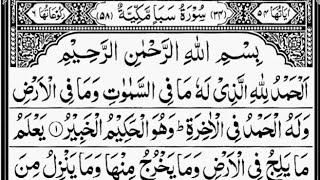 اٰيَاتُهَا ٥٤ (٣٤) سُوْرَةُ سَبَاٍ مَّكِّيَّةٌ (٥٨) رُكُوْعَاتُهَا ٦
بِسْمِ اللّٰهِ الرَّحْمٰنِ الرَّحِيْمِ
اَلْحَمْدُ لِلّٰهِ الَّذِىْ لَهٗ مَا فِى السَّمٰوٰتِ وَمَا فِى الْاَرْضِ
وَلَهُ الْحَمْدُ فِى الْاٰخِرَةِ ؕ وَهُوَ الْحَكِيْمُ الْخَبِيْرُ ۝۱ يَعْلَمُ
مَا يَلِجُ فِى الْاَرْضِ وَمَا يَخْرُجُ مِنْهَا وَمَا يَنْزِلُ مِنَ